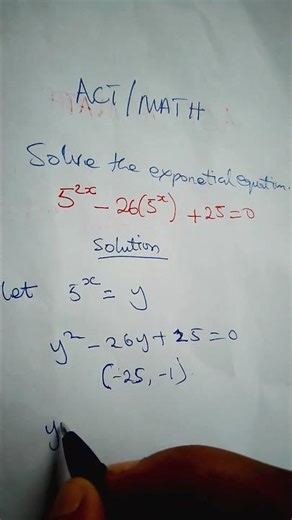 ACT/MATH
Solve the exponetial equation.
5^{2x} - 26(5^x) + 25 = 0
Solution
Let 5^x = y
y^2 - 26y + 25 = 0
(-25, -1)
y